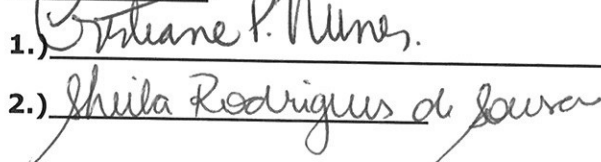 1.) Cristiane P. Nunes.
2.) Sheila Rodrigues de Sousa